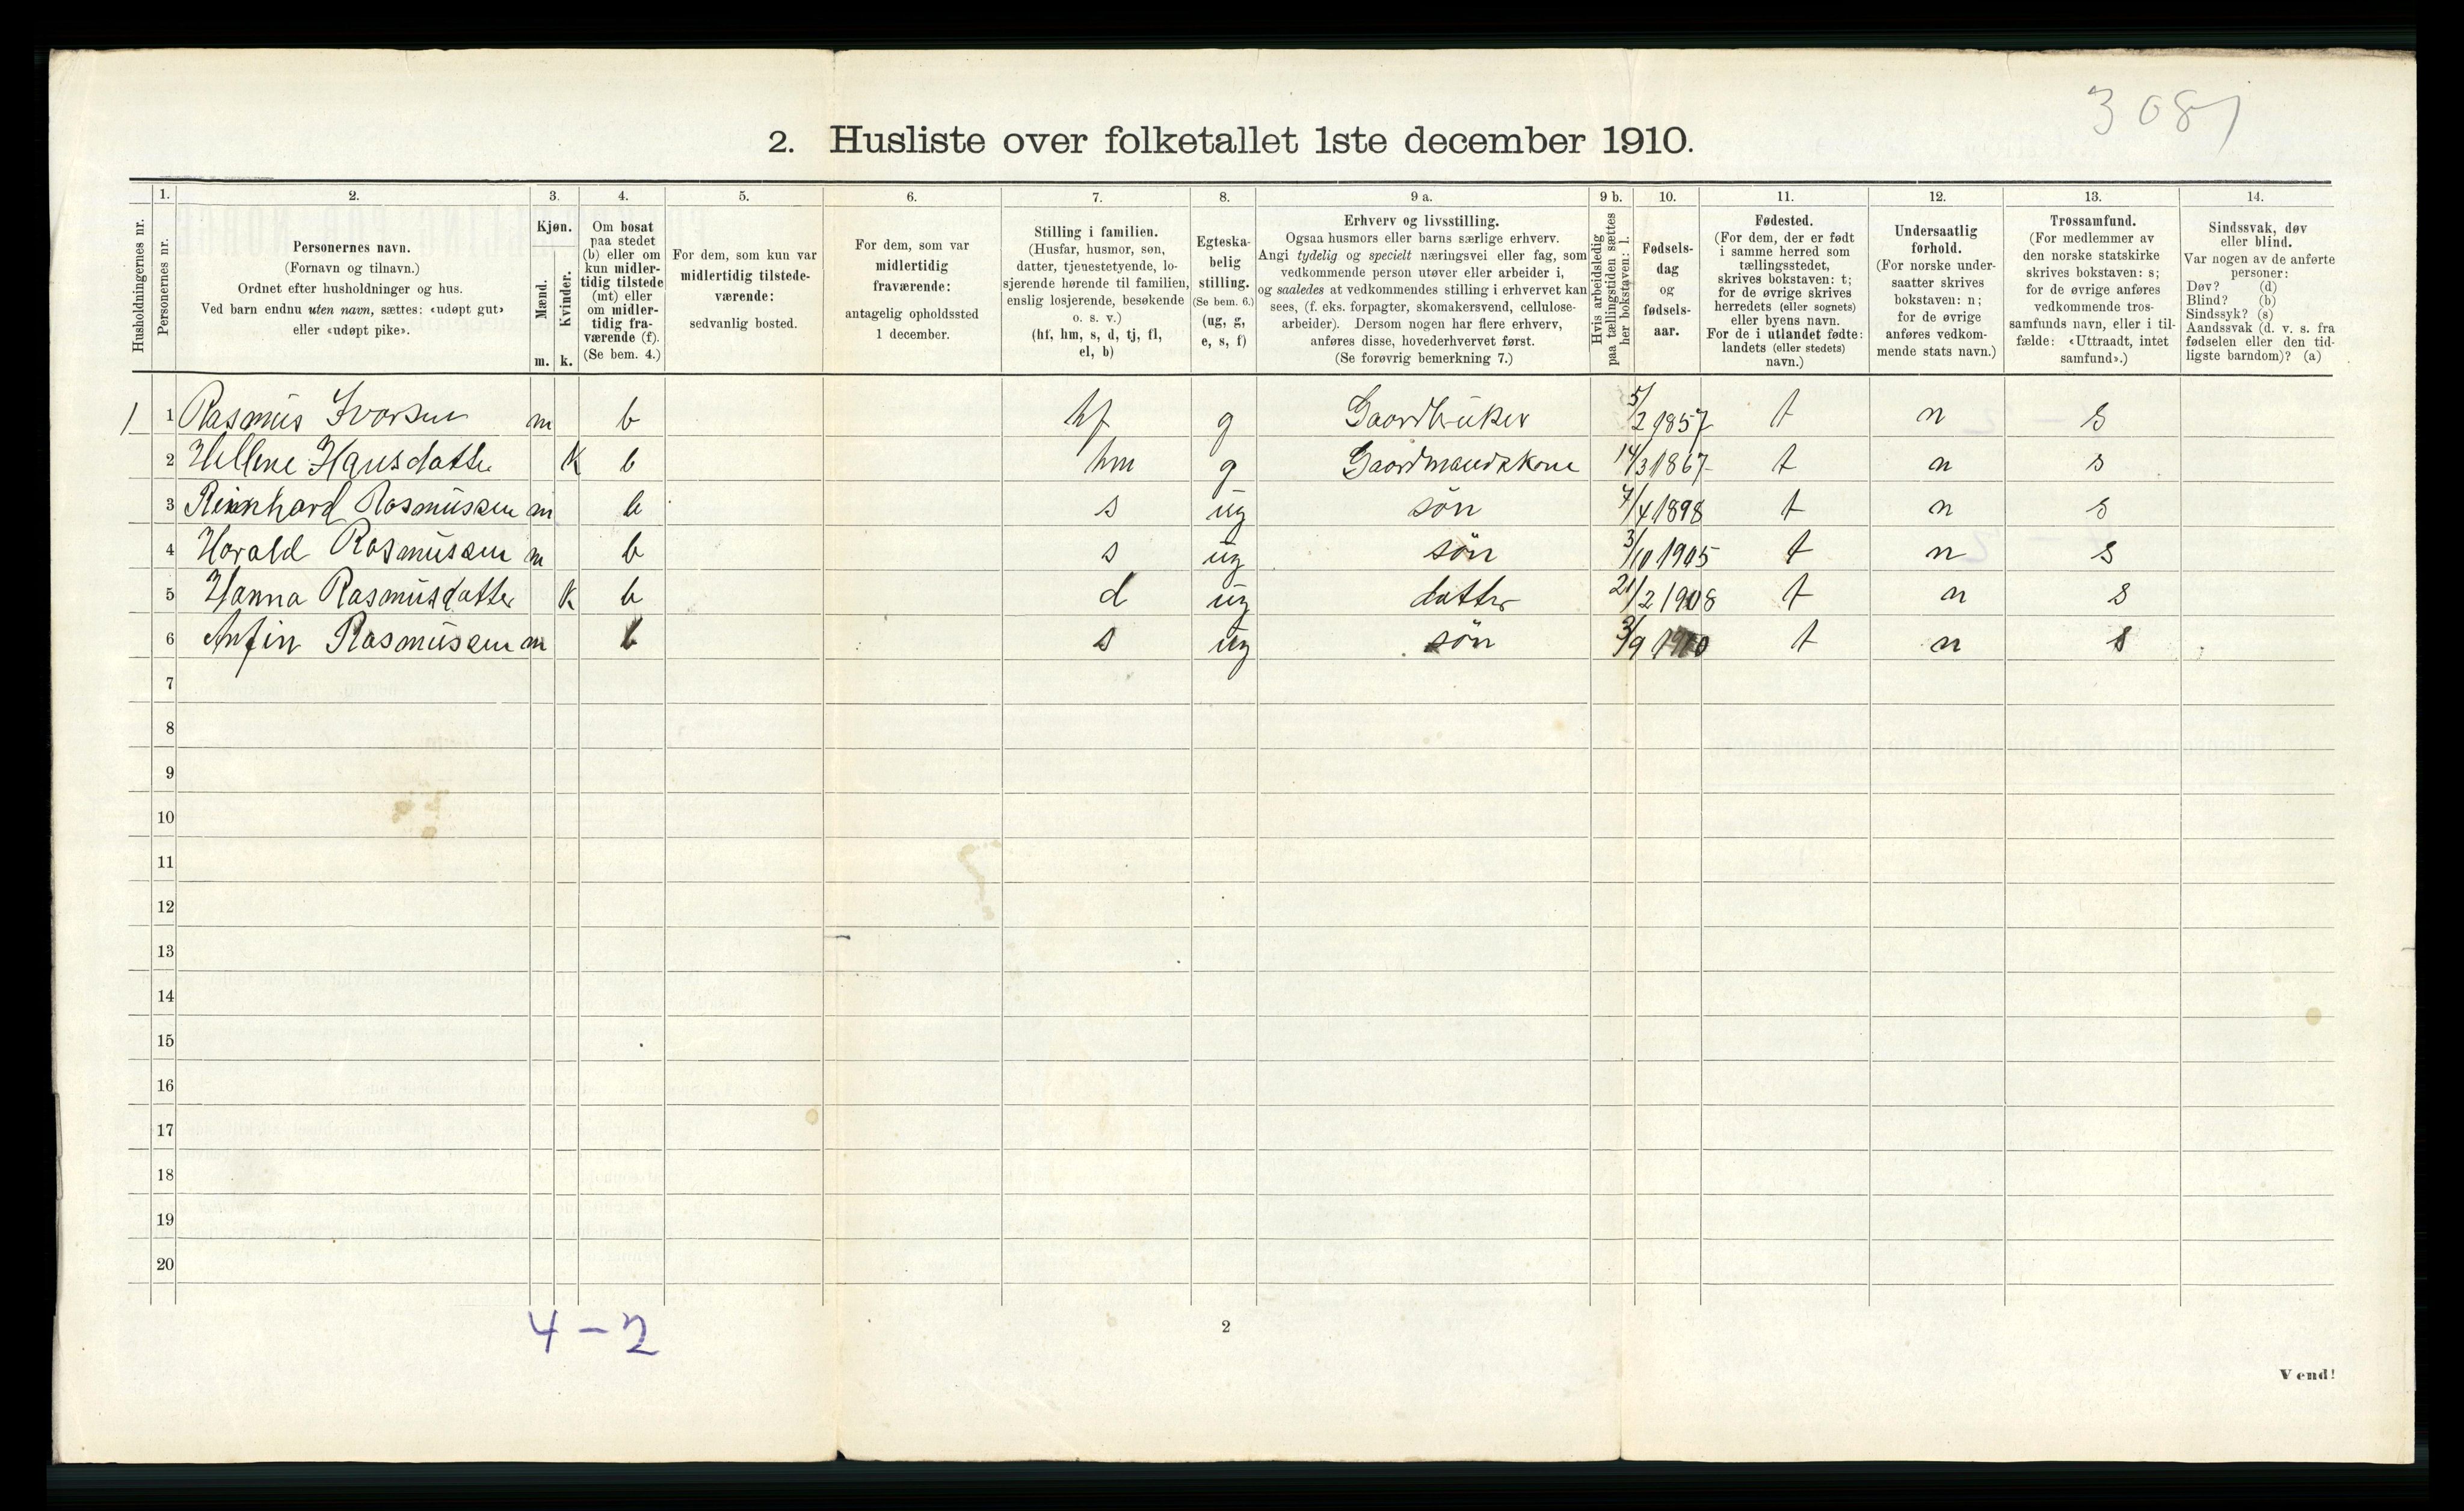 308
2. Husliste over folketallet 1ste december 1910.
Husholdningernes nr.
1.
Personernes nr.
2.
Personernes navn.
(Fornavn og tilnavn.)
Ordnet efter husholdninger og hus.
Ved barn endnu uten navn, sættes: «udøpt gut»
eller «udøpt pike».
3.
Kjøn.
Mænd.
m.
Kvinder.
k.
4.
Om bosat
paa stedet
(b) eller om
kun midler-
tidig tilstede
(mt) eller
om midler-
tidig fra-
værende (f).
(Se bem. 4.)
5.
For dem, som kun var
midlertidig tilstede-
værende:
sedvanlig bosted.
6.
For dem, som var
midlertidig
fraværende:
antagelig opholdssted
1 december.
7.
Stilling i familien.
(Husfar, husmor, søn,
datter, tjenestetyende, lo-
sjerende hørende til familien,
enslig losjerende, besøkende
o. s. v.)
(hf, hm, s, d, tj, fl,
el, b)
8.
Egteska-
belig
stilling.
(Se bem. 6.)
(ug, g,
e, s, f)
9 a.
Erhverv og livsstilling.
Ogsaa husmors eller barns særlige erhverv.
Angi tydelig og specielt næringsvei eller fag, som
vedkommende person utøver eller arbeider i,
og saaledes at vedkommendes stilling i erhvervet kan
sees, (f. eks. forpagter, skomakersvend, cellulose-
arbeider). Dersom nogen har flere erhverv,
anføres disse, hovederhvervet først.
(Se forøvrig bemerkning 7.)
9 b.
Hvis arbeidsledig
paa tællingstiden sættes
her bokstaven: l.
10.
Fødsels-
dag
og
fødsels-
aar.
11.
Fødested.
(For dem, der er født
i samme herred som
tællingsstedet,
skrives bokstaven: t;
for de øvrige skrives
herredets (eller sognets)
eller byens navn.
For de i utlandet fødte:
landets (eller stedets)
navn.)
12.
Undersaatlig
forhold.
(For norske under-
saatter skrives
bokstaven: n;
for de øvrige
anføres vedkom-
mende stats navn.)
13.
Trossamfund.
(For medlemmer av
den norske statskirke
skrives bokstaven: s;
for de øvrige anføres
vedkommende tros-
samfunds navn, eller i til-
fælde: «Uttraadt, intet
samfund».)
14.
Sindssvak, døv
eller blind.
Var nogen av de anførte
personer:
Døv? (d)
Blind? (b)
Sindssyk? (s)
Aandssvak (d. v. s. fra
fødselen eller den tid-
ligste barndom)? (a)
1 1 Rasmus Ivarsen m b hf g Gaardbruker 5/2 1857 t n s
2 Hellene Hansdatter K b hm g Gaardmandskone 14/3 1867 t n s
3 Reinhard Rasmussen m b s ug søn 7/4 1898 t n s
4 Harald Rasmussen m b s ug søn 3/10 1905 t n s
5 Hanna Rasmusdatter K b d ug datter 21/2 1908 t n s
6 Anfin Rasmussen m b s ug søn 3/9 1910 t n s
7
8
9
10
11
12
13
14
15
16
17
18
19
20
4 – 2
2
Vend!